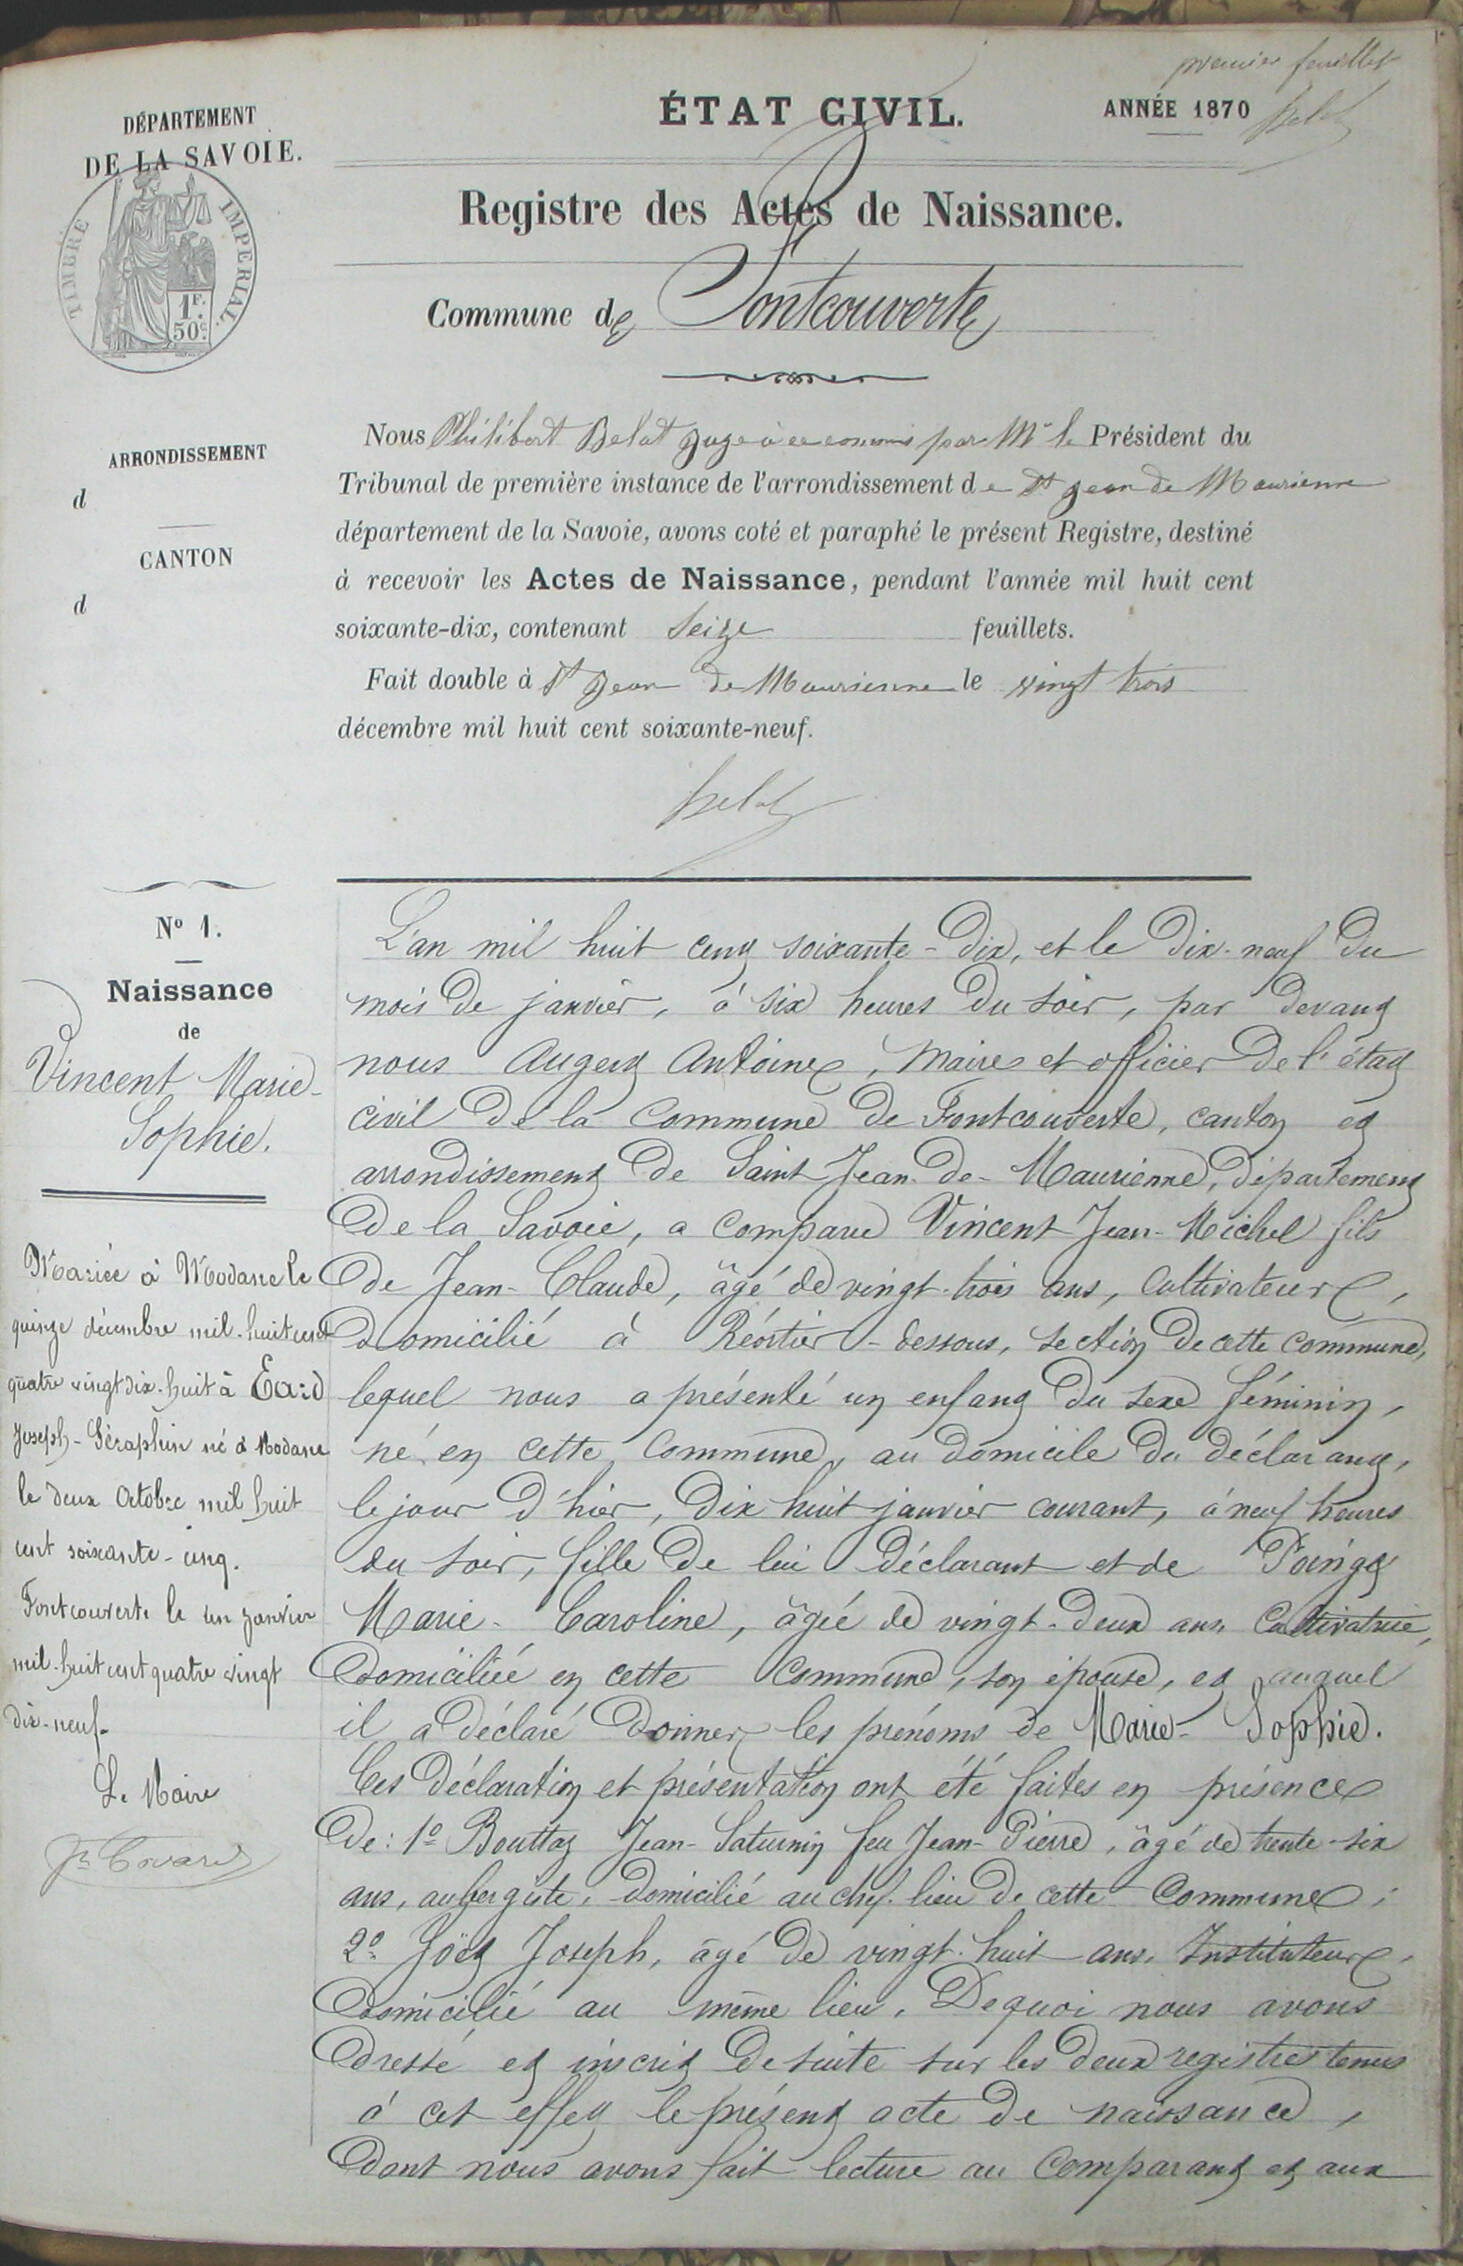 premier feuillet
DÉPARTEMENT
DE LA SAVOIE.
ÉTAT CIVIL.
ANNÉE 1870
Belat
TIMBRE IMPERIAL.
1F.
50c.
Registre des Actes de Naissance.
Commune de Fontcouverte
ARRONDISSEMENT
d
CANTON
d
Nous Philibert Belat Juge à ce commis par Mr le Président du
Tribunal de première instance de l'arrondissement de St Jean de Maurienne
département de la Savoie, avons coté et paraphé le présent Registre, destiné
à recevoir les Actes de Naissance, pendant l'année mil huit cent
soixante-dix, contenant Seize feuillets.
Fait double à St Jean de Maurienne le vingt trois
décembre mil huit cent soixante-neuf.
Belat
No 1.
Naissance
de
Vincent Marie-
Sophie.
Mariée à Modane le
quinze décembre mil-huit cent
quatre vingt dix-huit à
Joseph-Séraphin né à Modane
le deux Octobre mil huit
cent soixante-cinq.
Fontcouverte le un janvier
mil-huit cent quatre vingt
dix-neuf.
Le Maire
L'an mil huit cent soixante-dix, et le dix-neuf du
mois de janvier, à six heures du soir, par devant
nous Augert Antoine, Maire et officier de l'état
civil de la Commune de Fontcouverte, canton et
arrondissement de Saint Jean-de-Maurienne, département
de la Savoie, a comparu Vincent Jean-Michel fils
de Jean-Claude, âgé de vingt-trois ans, Cultivateur,
domicilié à Réortier-dessous, section de cette commune,
lequel nous a présenté un enfant du sexe féminin,
né en cette Commune, au domicile du déclarant,
le jour d'hier, dix huit janvier courant, à neuf heures
du soir, fille de lui déclarant et de
Marie-Caroline, âgée de vingt-deux ans, Cultivatrice,
domiciliée en cette Commune, son épouse, et auquel
il a déclaré donner les prénoms de Marie-Sophie.
Ces déclaration et présentation ont été faites en présence
de: 1o Bouttaz Jean-Saturnin feu Jean-Pierre, âgé de trente-six
ans, aubergiste, domicilié au chef-lieu de cette Commune;
2o Joseph, âgé de vingt-huit ans, Instituteur,
domicilié au même lieu. De quoi nous avons
dressé et inscrit de suite sur les deux registres tenus
à cet effet le présent acte de naissance,
dont nous avons fait lecture au comparant et aux